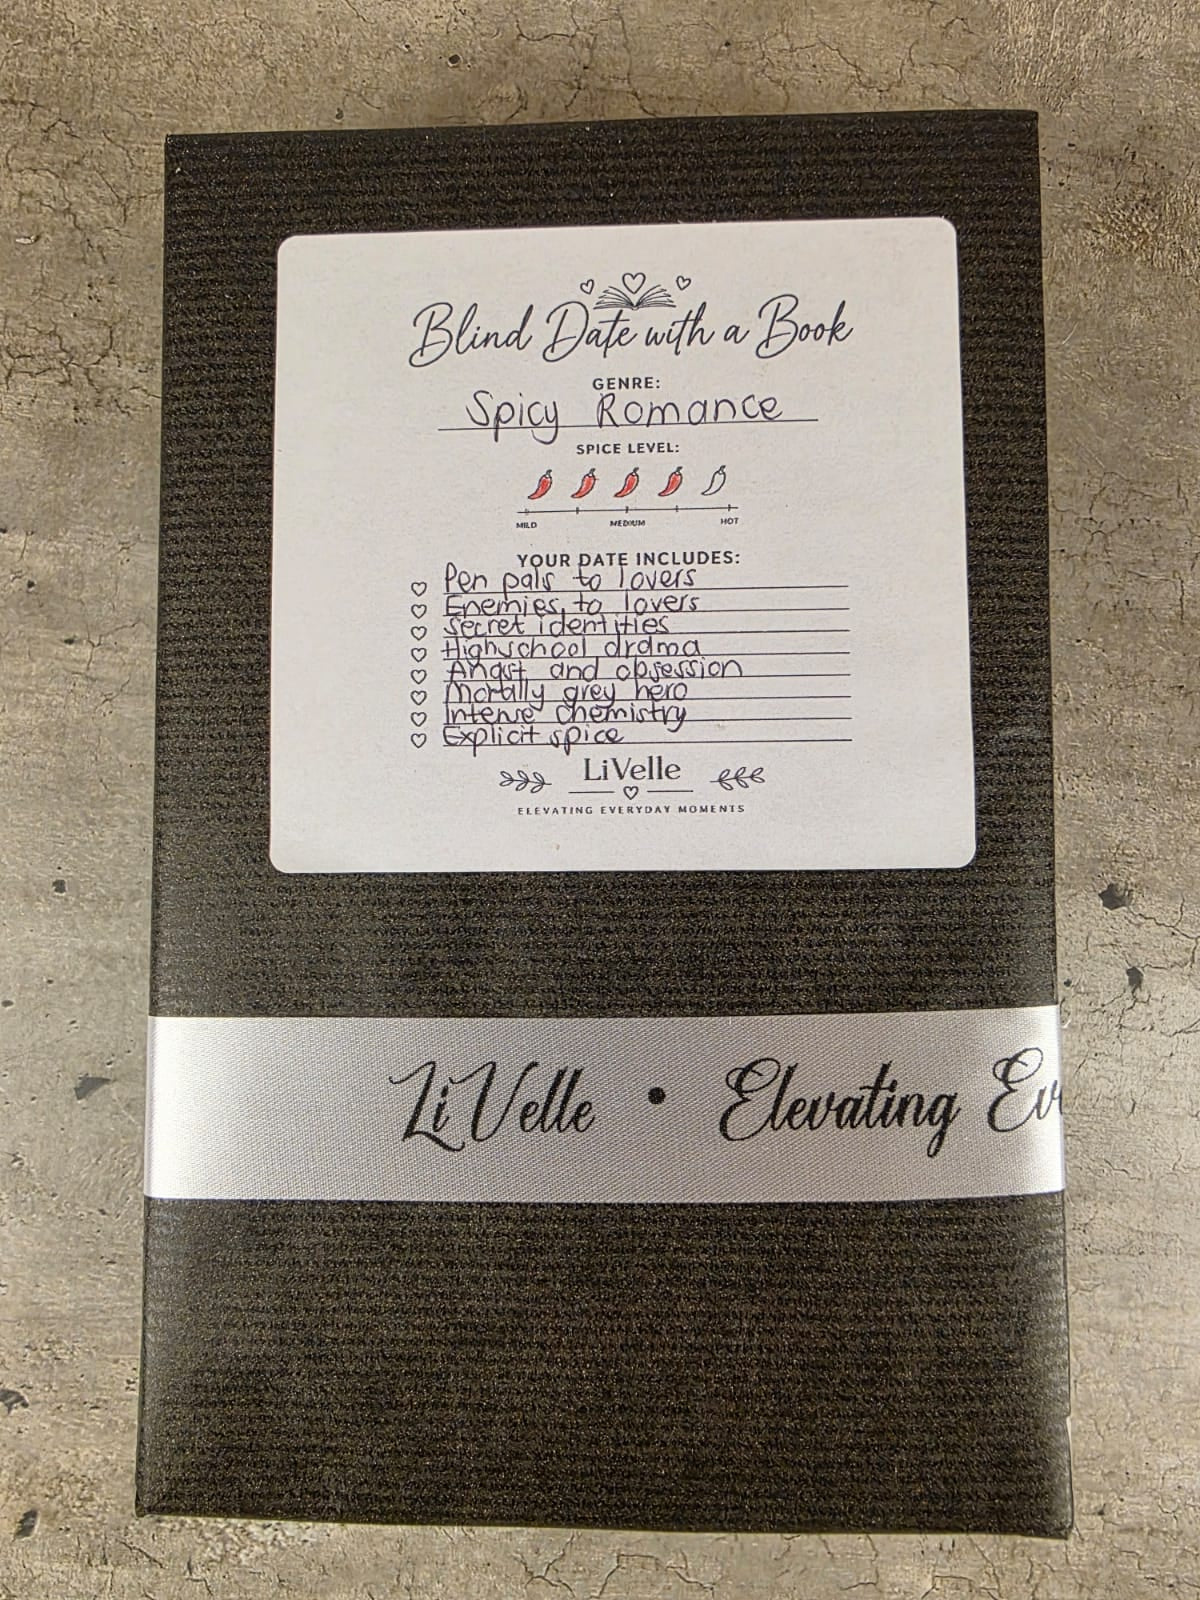 Blind Date with a Book
GENRE:
Spicy Romance
SPICE LEVEL:
MILD MEDIUM HOT
YOUR DATE INCLUDES:
Pen pals to lovers
Enemies to lovers
Secret identities
Highschool drama
Angst and obsession
Mortally grey hero
Intense chemistry
Explicit spice
LiVelle
ELEVATING EVERYDAY MOMENTS
LiVelle • Elevating Ev